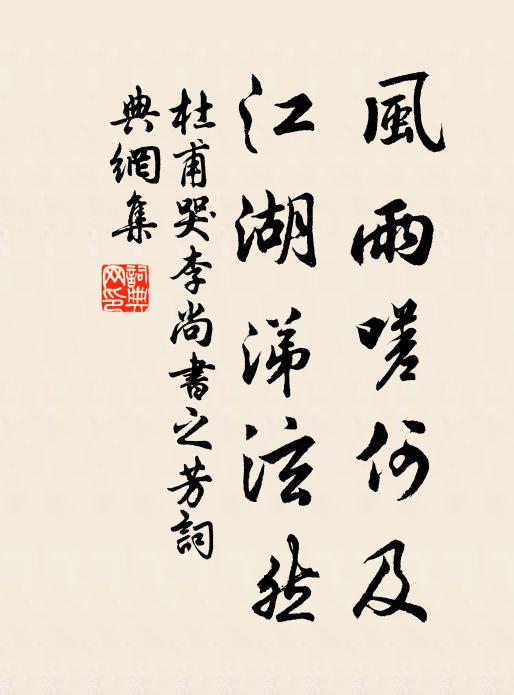 風雨嗟何及
江湖涕泫然
杜甫哭李尚書之芳詞
典網集
詞典
网印